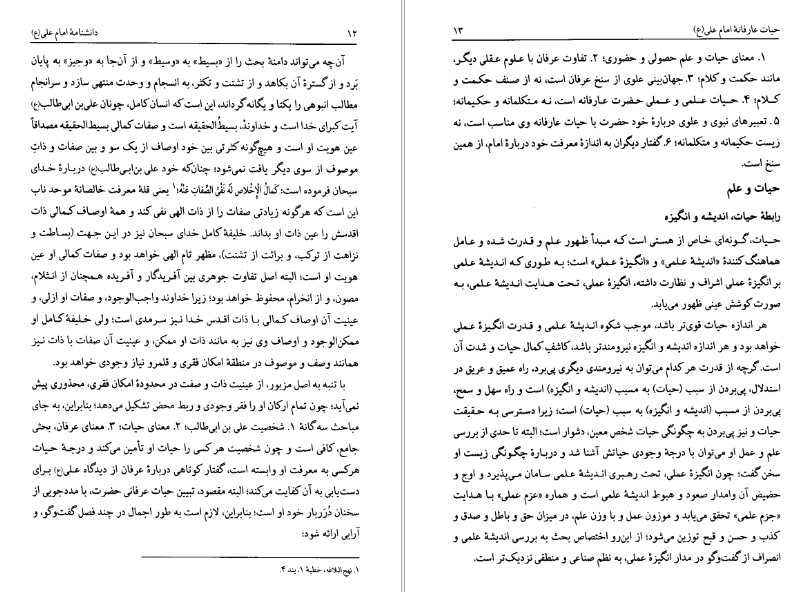 ۱۲
دانشنامهٔ امام علی(ع)
آن‌چه می‌تواند دامنهٔ بحث را از «بسیط» به «وسیط» و از آن‌جا به «وجیز» به پایان
بَرد و از گسترهٔ آن بکاهد و از تشتت و تکثر، به انسجام و وحدت منتهی سازد و سرانجام
مطالب انبوهی را یکتا و یگانه گرداند، این است که انسان کامل، چونان علی‌بن ابی‌طالب(ع)
آیت کبرای خدا است و خداوند، بسیطُ‌الحقیقه است و صفات کمالی بسیط‌الحقیقه مصداقاً
عین هویت او است و هیچ‌گونه کثرتی بین خود اوصاف از یک سو و بین صفات و ذاتِ
موصوف از سوی دیگر یافت نمی‌شود؛ چنان‌که خود علی بن‌ابی‌طالب(ع) دربارهٔ خدای
سبحان فرموده است: کَمالُ الإِخْلاصِ لَهُ نَفْیُ الصِّفاتِ عَنْهُ؛۱ یعنی قلهٔ معرفت خالصانهٔ موحد ناب
این است که هرگونه زیادتی صفات را از ذات الهی نفی کند و همهٔ اوصاف کمالی ذات
اقدسش را عین ذات او بداند. خلیفهٔ کامل خدای سبحان نیز در این جهت (بساطت و
نزاهت از ترکب، و برائت از تشتت)، مظهر تام الهی خواهد بود و صفات کمالی او عین
هویت او است؛ البته اصل تفاوت جوهری بین آفریدگار و آفریده همچنان از انثلام،
مصون، و از انخرام، محفوظ خواهد بود؛ زیرا خداوند واجب‌الوجود، و صفات او ازلی، و
عینیت آن اوصاف کمالی با ذات اقدس خدا نیز سرمدی است؛ ولی خلیفهٔ کامل او
ممکن‌الوجود و اوصاف وی نیز به مانند ذات او ممکن، و عینیت آن صفات با ذات نیز
همانند وصف و موصوف در منطقهٔ امکان فقری و قلمرو نیاز وجودی خواهد بود.
با تنبه به اصل مزبور، از عینیت ذات و صفت در محدودهٔ امکان فقری، محذوری پیش
نمی‌آید؛ چون تمام ارکان او را فقر وجودی و ربط محض تشکیل می‌دهد؛ بنابراین، به جای
مباحث سه‌گانهٔ ۱. شخصیت علی بن ابی‌طالب؛ ۲. معنای حیات؛ ۳. معنای عرفان، بحثی
جامع، کافی است و چون شخصیت هر کسی را حیات او تأمین می‌کند و درجهٔ حیات
هرکسی به معرفت او وابسته است، گفتار کوتاهی دربارهٔ عرفان از دیدگاه علی(ع) برای
دست‌یابی به آن کفایت می‌کند؛ البته مقصود، تبیین حیات عرفانی حضرت، با مددجویی از
سخنان دُرَربار خود او است؛ بنابراین، لازم است به طور اجمال در چند فصل گفت‌وگو، و
آرایی ارائه شود:
۱. نهج‌البلاغه، خطبهٔ ۱، بند ۴.
حیات عارفانهٔ امام علی(ع)
۱۳
۱. معنای حیات و علم حصولی و حضوری؛ ۲. تفاوت عرفان با علوم عقلی دیگر،
مانند حکمت و کلام؛ ۳. جهان‌بینی علوی از سنخ عرفان است، نه از صنف حکمت و
کلام؛ ۴. حیات علمی و عملی حضرت عارفانه است، نه متکلمانه و حکیمانه؛
۵. تعبیرهای نبوی و علوی دربارهٔ خود حضرت با حیات عارفانه وی مناسب است، نه
زیست حکیمانه و متکلمانه؛ ۶. گفتار دیگران به اندازهٔ معرفت خود دربارهٔ امام، از همین
سنخ است.
حیات و علم
رابطهٔ حیات، اندیشه و انگیزه
حیات، گونه‌ای خاص از هستی است که مبدأ ظهور علم و قدرت شده و عامل
هماهنگ کنندهٔ «اندیشهٔ علمی» و «انگیزهٔ عملی» است؛ به طوری که اندیشهٔ علمی
بر انگیزهٔ عملی اشراف و نظارت داشته، انگیزهٔ عملی، تحت هدایت اندیشهٔ علمی، به
صورت کوشش عینی ظهور می‌یابد.
هر اندازه حیات قوی‌تر باشد، موجب شکوه اندیشهٔ علمی و قدرت انگیزهٔ عملی
خواهد بود و هر اندازه اندیشه و انگیزه نیرومندتر باشد، کاشفِ کمال حیات و شدت آن
است. گرچه از قدرت هر کدام می‌توان به نیرومندی دیگری پی‌برد، راه عمیق و عریق در
استدلال، پی‌بردن از سبب (حیات) به مسبب (اندیشه و انگیزه) است و راه سهل و سمح،
پی‌بردن از مسبب (اندیشه و انگیزه) به سبب (حیات) است؛ زیرا دسترسی به حقیقت
حیات و نیز پی‌بردن به چگونگی حیات شخص معین، دشوار است؛ البته تا حدی از بررسی
علم و عمل او می‌توان با درجهٔ وجودی حیاتش آشنا شد و دربارهٔ چگونگی زیست او
سخن گفت؛ چون انگیزهٔ عملی، تحت رهبری اندیشهٔ علمی سامان می‌پذیرد و اوج و
حضیض آن وامدار صعود و هبوط اندیشهٔ علمی است و هماره «عزم عملی» با هدایت
«جزم علمی» تحقق می‌یابد و موزون عمل و با وزن علم، در میزان حق و باطل و صدق و
کذب و حسن و قبح توزین می‌شود؛ از این‌رو اختصاص بحث به بررسی اندیشهٔ علمی و
انصراف از گفت‌وگو در مدار انگیزهٔ عملی، به نظم صناعی و منطقی نزدیک‌تر است.